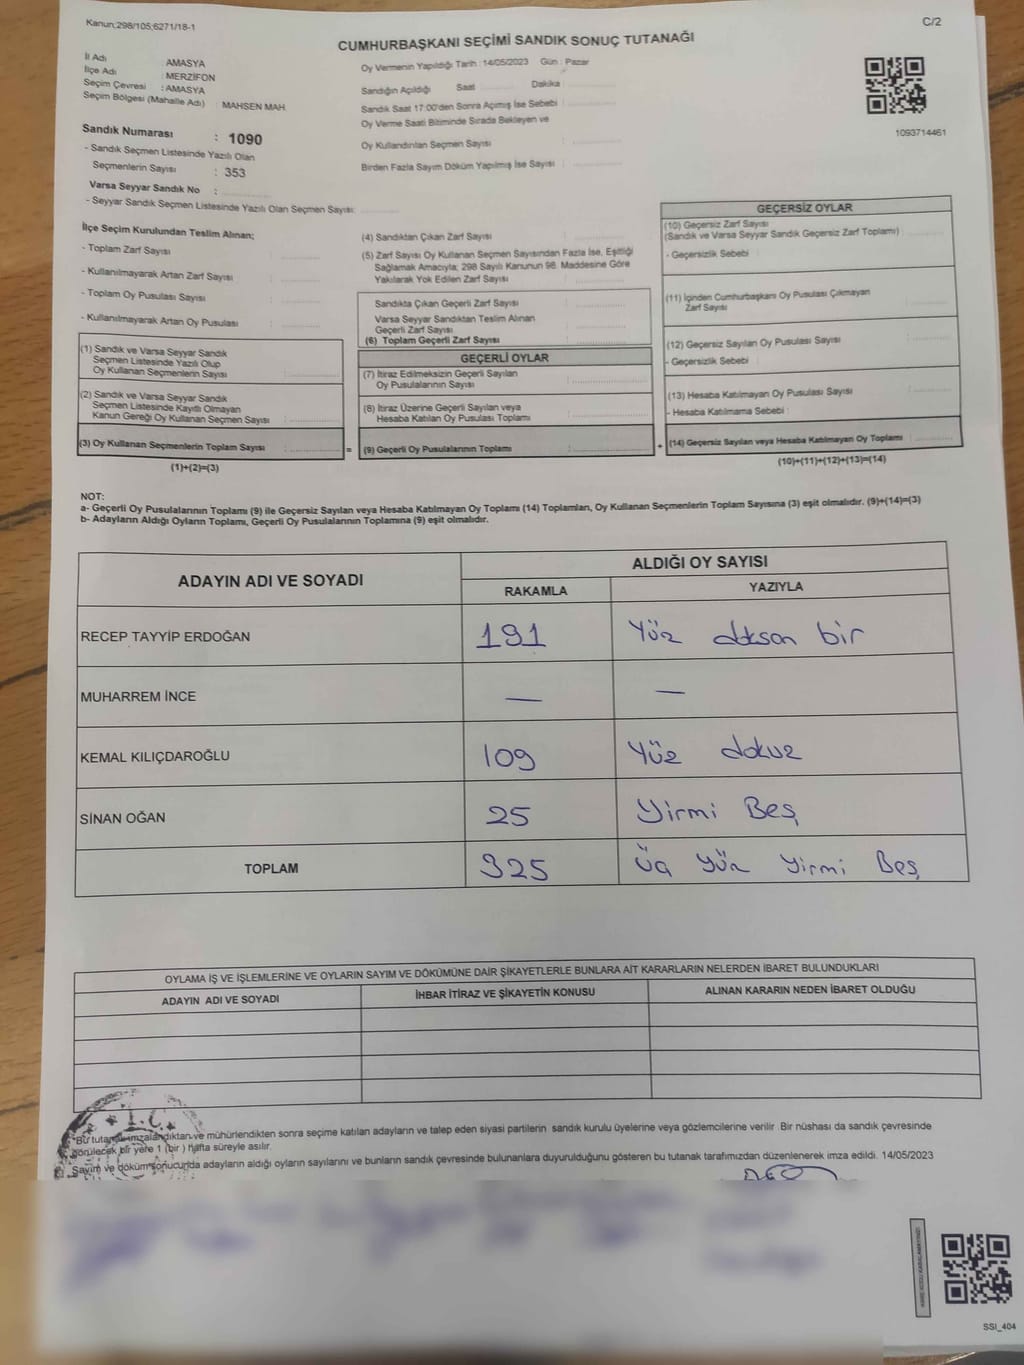 Kanun;298/105;6271/18-1
C/2
CUMHURBAŞKANI SEÇİMİ SANDIK SONUÇ TUTANAĞI
İl Adı : AMASYA
İlçe Adı : MERZİFON
Seçim Çevresi : AMASYA
Seçim Bölgesi (Mahalle Adı) : MAHSEN MAH.
Sandık Numarası : 1090
- Sandık Seçmen Listesinde Yazılı Olan
Seçmenlerin Sayısı : 353
Varsa Seyyar Sandık No :
- Seyyar Sandık Seçmen Listesinde Yazılı Olan Seçmen Sayısı:
Oy Vermenin Yapıldığı Tarih : 14/05/2023 Gün : Pazar
Sandığın Açıldığı Saat Dakika
Sandık Saat 17:00'den Sonra Açımış İse Sebebi
Oy Verme Saati Bitiminde Sırada Bekleyen ve
Oy Kullandırılan Seçmen Sayısı
Birden Fazla Sayım Döküm Yapılmış İse Sayısı
1093714461
İlçe Seçim Kurulundan Teslim Alınan;
- Toplam Zarf Sayısı
- Kullanılmayarak Artan Zarf Sayısı
- Toplam Oy Pusulası Sayısı
- Kullanılmayarak Artan Oy Pusulası
(1) Sandık ve Varsa Seyyar Sandık
Seçmen Listesinde Yazılı Olup
Oy Kullanan Seçmenlerin Sayısı
(2) Sandık ve Varsa Seyyar Sandık
Seçmen Listesinde Kayıtlı Olmayan
Kanun Gereği Oy Kullanan Seçmen Sayısı
(3) Oy Kullanan Seçmenlerin Toplam Sayısı
(1)+(2)=(3)
(4) Sandıktan Çıkan Zarf Sayısı
(5) Zarf Sayısı Oy Kullanan Seçmen Sayısından Fazla İse, Eşitliği
Sağlamak Amacıyla; 298 Sayılı Kanunun 98. Maddesine Göre
Yakılarak Yok Edilen Zarf Sayısı
Sandıkta Çıkan Geçerli Zarf Sayısı
Varsa Seyyar Sandıktan Teslim Alınan
Geçerli Zarf Sayısı
(6) Toplam Geçerli Zarf Sayısı
GEÇERLİ OYLAR
(7) İtiraz Edilmeksizin Geçerli Sayılan
Oy Pusulalarının Sayısı
(8) İtiraz Üzerine Geçerli Sayılan veya
Hesaba Katılan Oy Pusulası Toplamı
= (9) Geçerli Oy Pusulalarının Toplamı
GEÇERSİZ OYLAR
(10) Geçersiz Zarf Sayısı
(Sandık ve Varsa Seyyar Sandık Geçersiz Zarf Toplamı)
- Geçersizlik Sebebi
(11) İçinden Cumhurbaşkanı Oy Pusulası Çıkmayan
Zarf Sayısı
(12) Geçersiz Sayılan Oy Pusulası Sayısı
- Geçersizlik Sebebi
(13) Hesaba Katılmayan Oy Pusulası Sayısı
- Hesaba Katılmama Sebebi
+ (14) Geçersiz Sayılan veya Hesaba Katılmayan Oy Toplamı
(10)+(11)+(12)+(13)=(14)
NOT:
a- Geçerli Oy Pusulalarının Toplamı (9) ile Geçersiz Sayılan veya Hesaba Katılmayan Oy Toplamı (14) Toplamları, Oy Kullanan Seçmenlerin Toplam Sayısına (3) eşit olmalıdır. (9)+(14)=(3)
b- Adayların Aldığı Oyların Toplamı, Geçerli Oy Pusulalarının Toplamına (9) eşit olmalıdır.
ADAYIN ADI VE SOYADI ALDIĞI OY SAYISI
RAKAMLA YAZIYLA
RECEP TAYYİP ERDOĞAN 191 Yüz doksan bir
MUHARREM İNCE — —
KEMAL KILIÇDAROĞLU 109 Yüz dokuz
SİNAN OĞAN 25 Yirmi Beş
TOPLAM 325 Üç yüz yirmi Beş
OYLAMA İŞ VE İŞLEMLERİNE VE OYLARIN SAYIM VE DÖKÜMÜNE DAİR ŞİKAYETLERLE BUNLARA AİT KARARLARIN NELERDEN İBARET BULUNDUKLARI
ADAYIN ADI VE SOYADI İHBAR İTİRAZ VE ŞİKAYETİN KONUSU ALINAN KARARIN NEDEN İBARET OLDUĞU
T.C.
*Bu tutanak imzalandıktan ve mühürlendikten sonra seçime katılan adayların ve talep eden siyasi partilerin sandık kurulu üyelerine veya gözlemcilerine verilir. Bir nüshası da sandık çevresinde
görülecek bir yere 1 (bir ) hafta süreyle asılır.
Sayım ve döküm sonucunda adayların aldığı oyların sayılarını ve bunların sandık çevresinde bulunanlara duyurulduğunu gösteren bu tutanak tarafımızdan düzenlenerek imza edildi. 14/05/2023
SSI_404